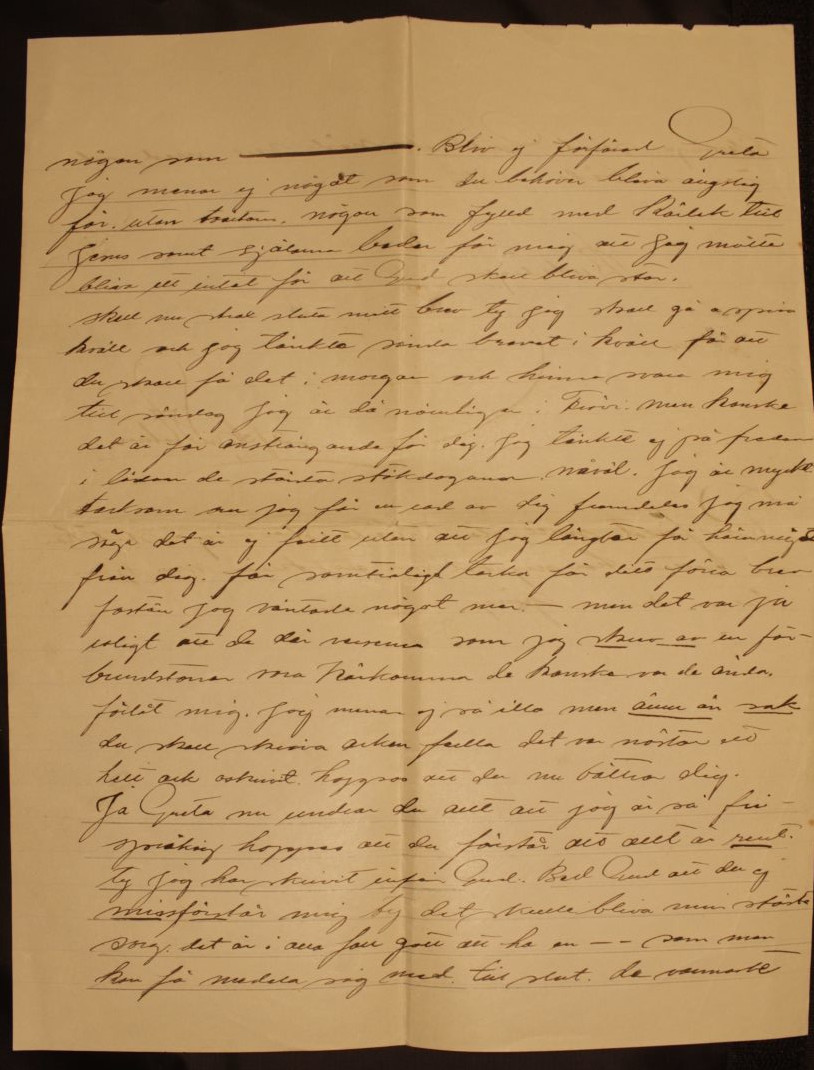 någon som ———. Bliv ej förfärad Greta
jag menar ej något som du behöver bliva ängslig
för. utan tvärtom. någon som fylld med kärlek till
Jesus samt själarna beder för mig att jag måtte
bliva ett intet för att Gud skall bliva stor.
skall nu strax sluta mitt brev ty jag skall gå
kväll och jag tänkte sända brevet i kväll för att
du skall få det i morgon och hinna svara mig
till söndag jag är då nämligen i Frövi. men kanske
det är för ansträngande för dig. jag tänkte ej på
i de värsta stökdagarna. nåväl. Jag är mycket
tacksam om jag får en rad av dig framdeles jag må
säga det är ej fritt utan att jag längtar få höra något
från dig. får samtidigt tacka för ditt förra brev
fastän jag väntade något mer. — men det var ju
roligt att de där verserna som jag skrev av en för-
bundstonar voro de kanske var de enda.
förlåt mig. Jag menar ej så illa men ännu en sak
du skall skriva arken fulla det var nästan ett
helt ark oskrivit. hoppas att du nu bättrar dig.
Ja Greta nu undrar du allt att jag är så fri-
språkig hoppas att du förstår att allt är rent.
ty jag har skrivit inför Gud. Bed Gud att du ej
missförstår mig ty det skulle bliva min största
sorg. det är i alla fall gott att ha en — — som man
kan få meddela sig med. till slut. de varmaste